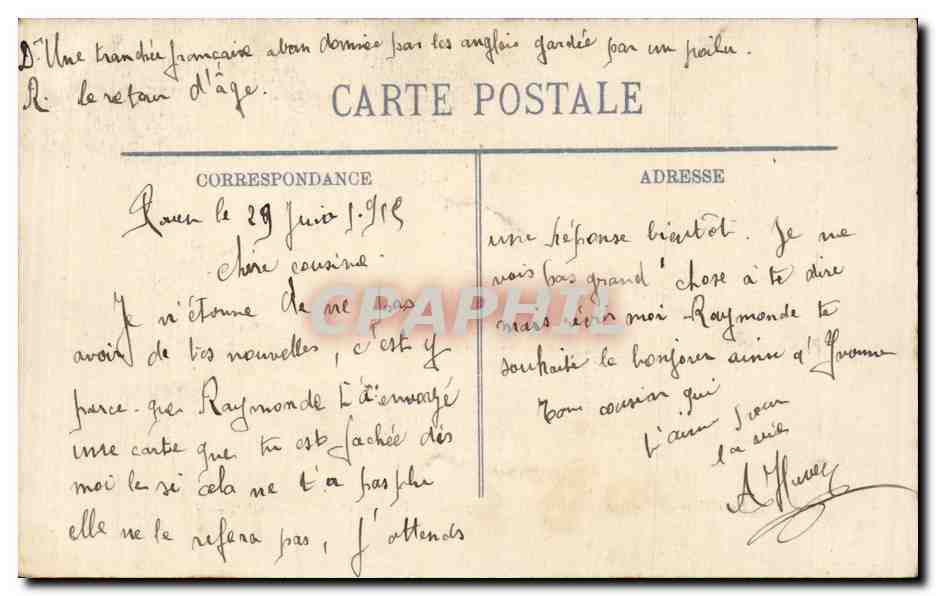 Dte Une tranchée française aban donnée par les anglais gardée par un poilu.
R. le retour d'âge.
CARTE POSTALE
CORRESPONDANCE
ADRESSE
Rouen le 29 Juin 1915
chère cousine
Je m'étonne de ne pas
avoir de tes nouvelles, c'est y
parce que Raymonde t'a envoyé
une carte que tu est fachée dis
moi le si cela ne t'a pas plu
elle ne le refera pas, J'attends
une réponse bientôt. Je ne
vois pas grand'chose à te dire
mais écris moi Raymonde te
souhaite le bonjour ainsi q' Yvonne
Ton cousin qui
t'aime pour
la vie
A Huvey
CPAPHIL